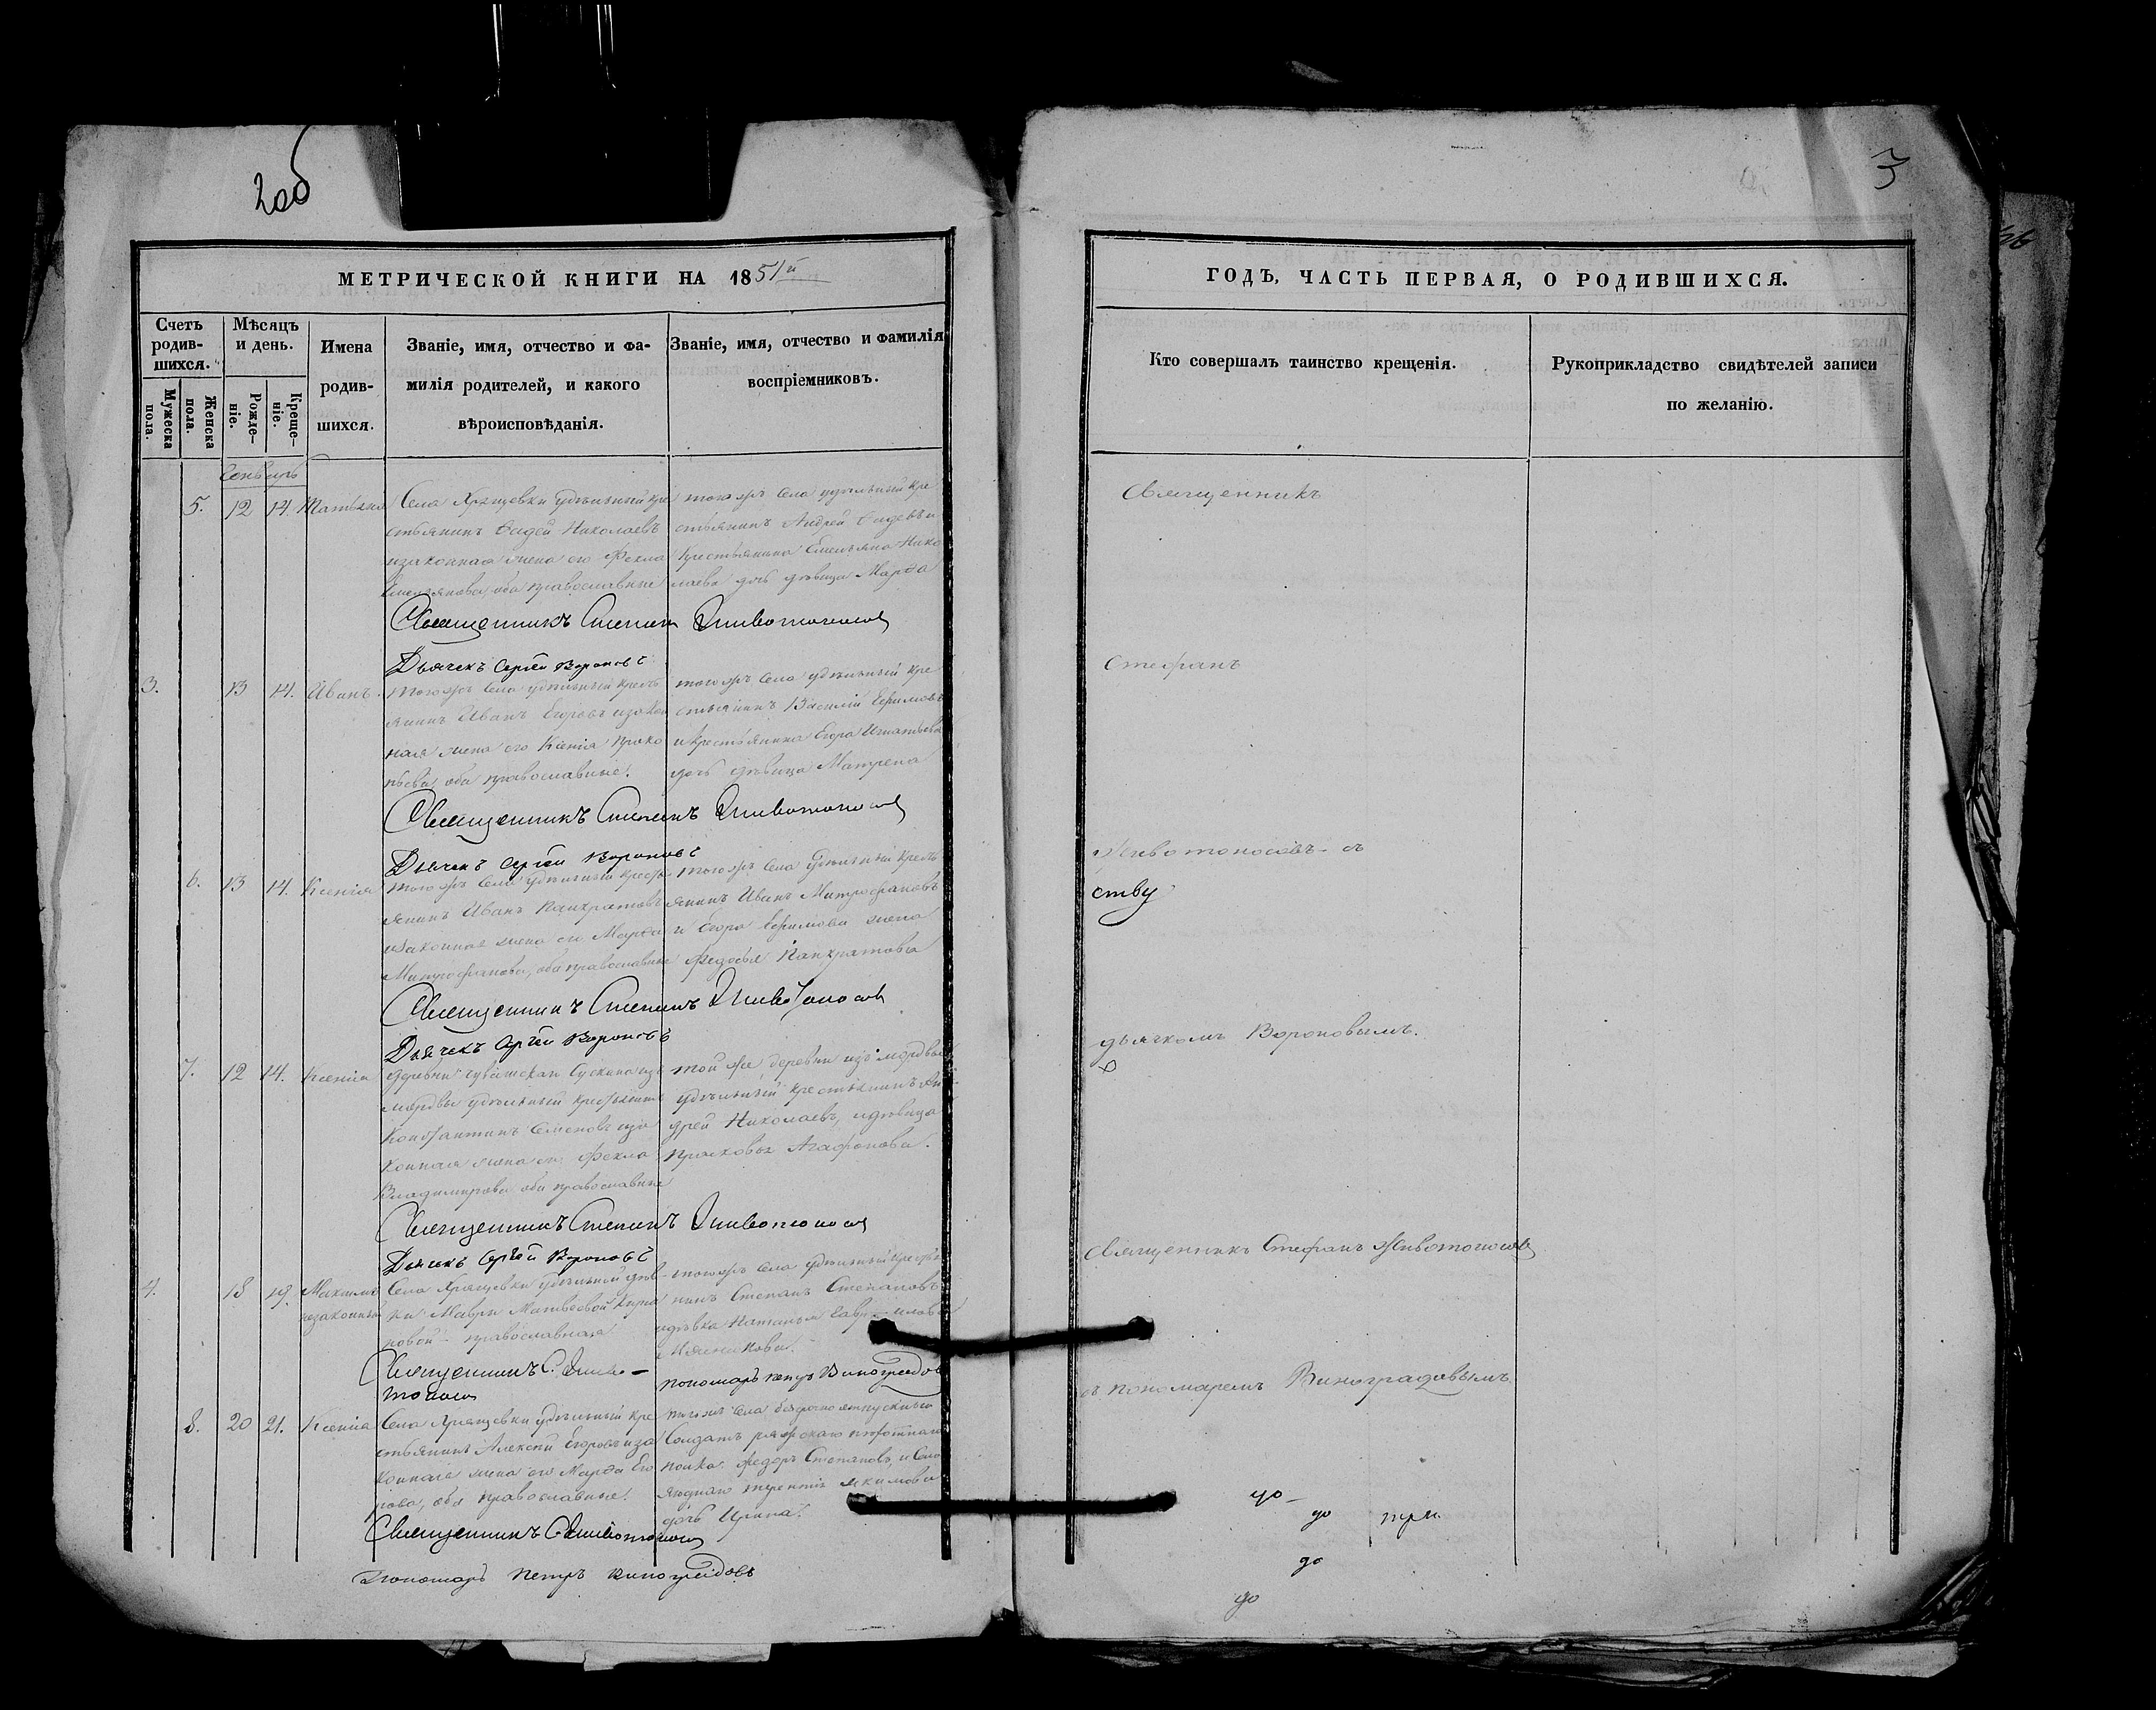 2 об
3
МЕТРИЧЕСКОЙ КНИГИ НА 1851й
ГОДЪ, ЧАСТЬ ПЕРВАЯ, О РОДИВШИХСЯ.
Счетъ родив-шихся.
Мужеска пола.
Женска пола.
Мѣсяцъ и день.
Рожде-ніе.
Креще-ніе.
Имена родив-шихся.
Званіе, имя, отчество и фа-
милія родителей, и какого
вѣроисповѣданія.
Званіе, имя, отчество и фамилія
воспріемниковъ.
Кто совершалъ таинство крещенія.
Рукоприкладство свидѣтелей записи
по желанію.
5. 12 14. Татьяна
Села Хрящевки удѣльный кре
стьянинъ Фадей Николаевъ
и законная жена его Фекла
Емельянова, оба православные
того жъ села удѣльный кре
стьянинъ Андрей Фадеевъ и
крестьянина Емельяна Нико
лаева дочь дѣвица Марфа
Священникъ Степанъ Животоносов
Дьячекъ Сергей Вороновъ
3. 13 14. Иванъ.
того жъ села удѣльный кресть
янинъ Иванъ Егоровъ и закон
ная жена его Ксенія Проко
пьева, оба православные.
того жъ села удѣльный кре
стьянинъ Василій Ефимовъ
и крестьянина Егора Игнатьева
дочь дѣвица Матрена
Священникъ Степанъ Животоносов
Дьячекъ Сергей Вороновъ
6. 13 14. Ксенія
того жъ села удѣльный кресть
янинъ Иванъ Панкратовъ
и законная жена его Марфа
Митрофанова, оба православные
того жъ села удѣльный кресть
янинъ Иванъ Митрофановъ
и Егора Ефимова жена
Федосья Панкратова
Священникъ Степанъ Животоносов
Дьячекъ Сергей Вороновъ
7. 12 14. Ксенія
деревни Чувашскаго Сускана изъ
мордвы удѣльный крестьянинъ
Константинъ Семеновъ и за
конная жена его Фекла
Владимирова оба православные
той же деревни изъ мордвы
удѣльный крестьянинъ Ан
дрей Николаевъ, и дѣвица
Прасковья Агафонова.
Священникъ Степанъ Животоносов
Дьячекъ Сергей Вороновъ
4. 18 19. Максимъ
незаконный
Села Хрящевки удѣльной дѣв-
ки Мавры Матвѣевой
православная
того жъ села удѣльный крестья
нинъ Степанъ Степановъ
и дѣвка Наталья Гаврилова
Священникъ С. Живо-
тоносов
пономарь Петръ Виноградовъ
8. 20 21. Ксенія
Села Хрящевки удѣльный кре
стьянинъ Алексѣй Егоровъ и за
конная жена его Марфа Его
рова, оба православные.
того жъ села безсрочно отпускный
солдатъ ряжскаго пѣхотнаго
полка Федоръ Степановъ, и
Терентія Якимова
дочь Ирина.
Священникъ С. Животоносов
Пономарь Петръ Виноградовъ
Священникъ
Стефанъ
Животоносовъ съ
ству
дьячкомъ Вороновымъ.
Священникъ Стефанъ Животоносов
съ пономаремъ Виноградовымъ
до
до